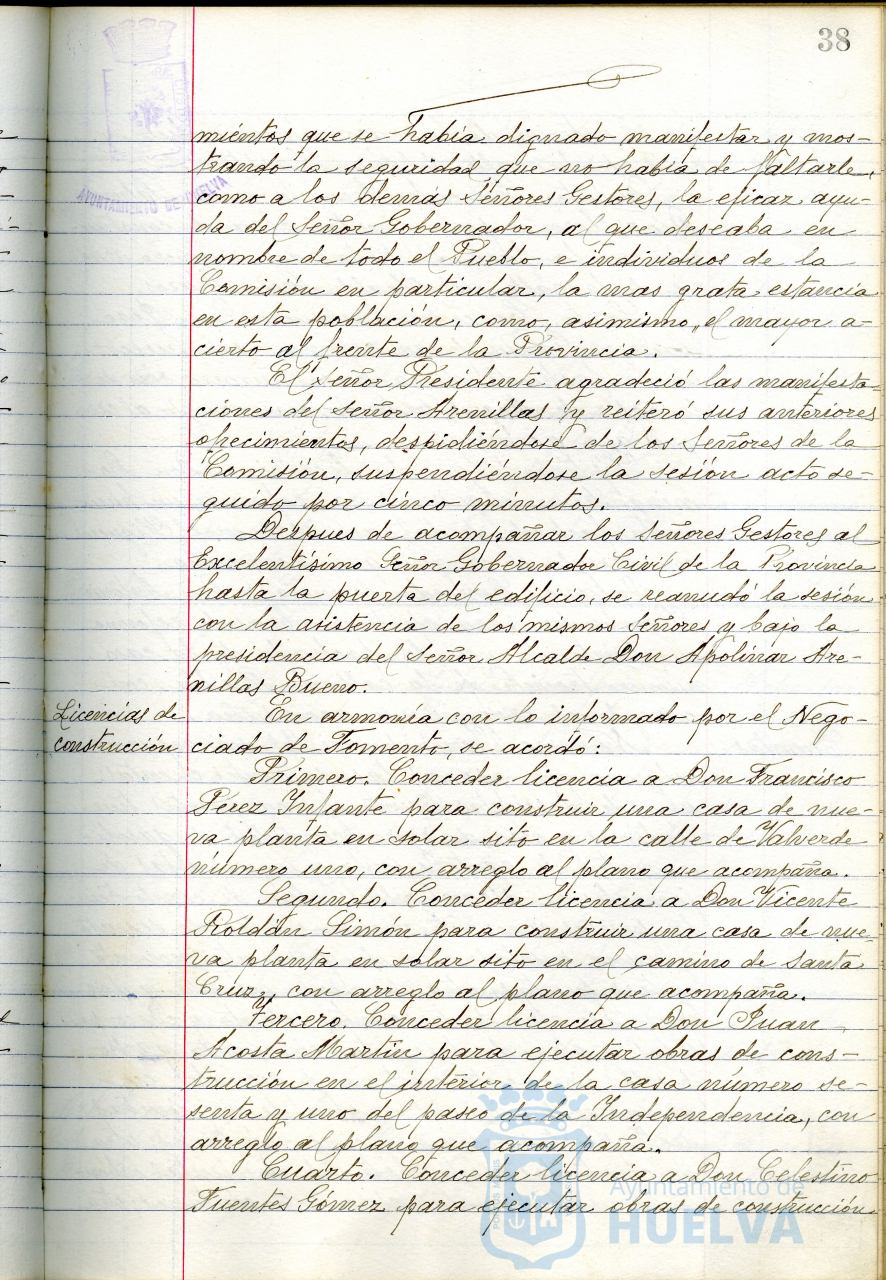 38
AYUNTAMIENTO DE HUELVA
mientos que se había dignado manifestar y mos-
trando la seguridad que no había de faltarle,
como a los demás Señores Gestores, la eficaz ayu-
da del Señor Gobernador, al que deseaba en
nombre de todo el Pueblo, e individuos de la
Comisión en particular, la mas grata estancia
en esta población, como, asimismo, el mayor a-
cierto al frente de la Provincia.
El Señor Presidente agradeció las manifesta
ciones del Señor Arenillas y reiteró sus anteriores
ofrecimientos, despidiéndose de los Señores de la
Comisión, suspendiéndose la sesión acto se-
guido por cinco minutos.
Despues de acompañar los Señores Gestores al
Excelentísimo Señor Gobernador Civil de la Provincia
hasta la puerta del edificio, se reanudó la sesión
con la asistencia de los mismos Señores y bajo la
presidencia del Señor Alcalde Don Apolinar Are-
nillas Bueno.
Licencias de
construcción
En armonía con lo informado por el Nego-
ciado de Fomento, se acordó:
Primero. Conceder licencia a Don Francisco
Pérez Infante para construir una casa de nue-
va planta en solar sito en la calle de Valverde
número uno, con arreglo al plano que acompaña.
Segundo. Conceder licencia a Don Vicente
Roldán Simón para construir una casa de nue-
va planta en solar sito en el camino de Santa
Cruz, con arreglo al plano que acompaña.
Tercero. Conceder licencia a Don Juan
Acosta Martin para ejecutar obras de cons-
trucción en el interior de la casa número se-
senta y uno del paseo de la Independencia, con
arreglo al plano que acompaña.
Cuarto. Conceder licencia a Don Celestino
Fuentes Gómez para ejecutar obras de construcción
Ayuntamiento de
HUELVA